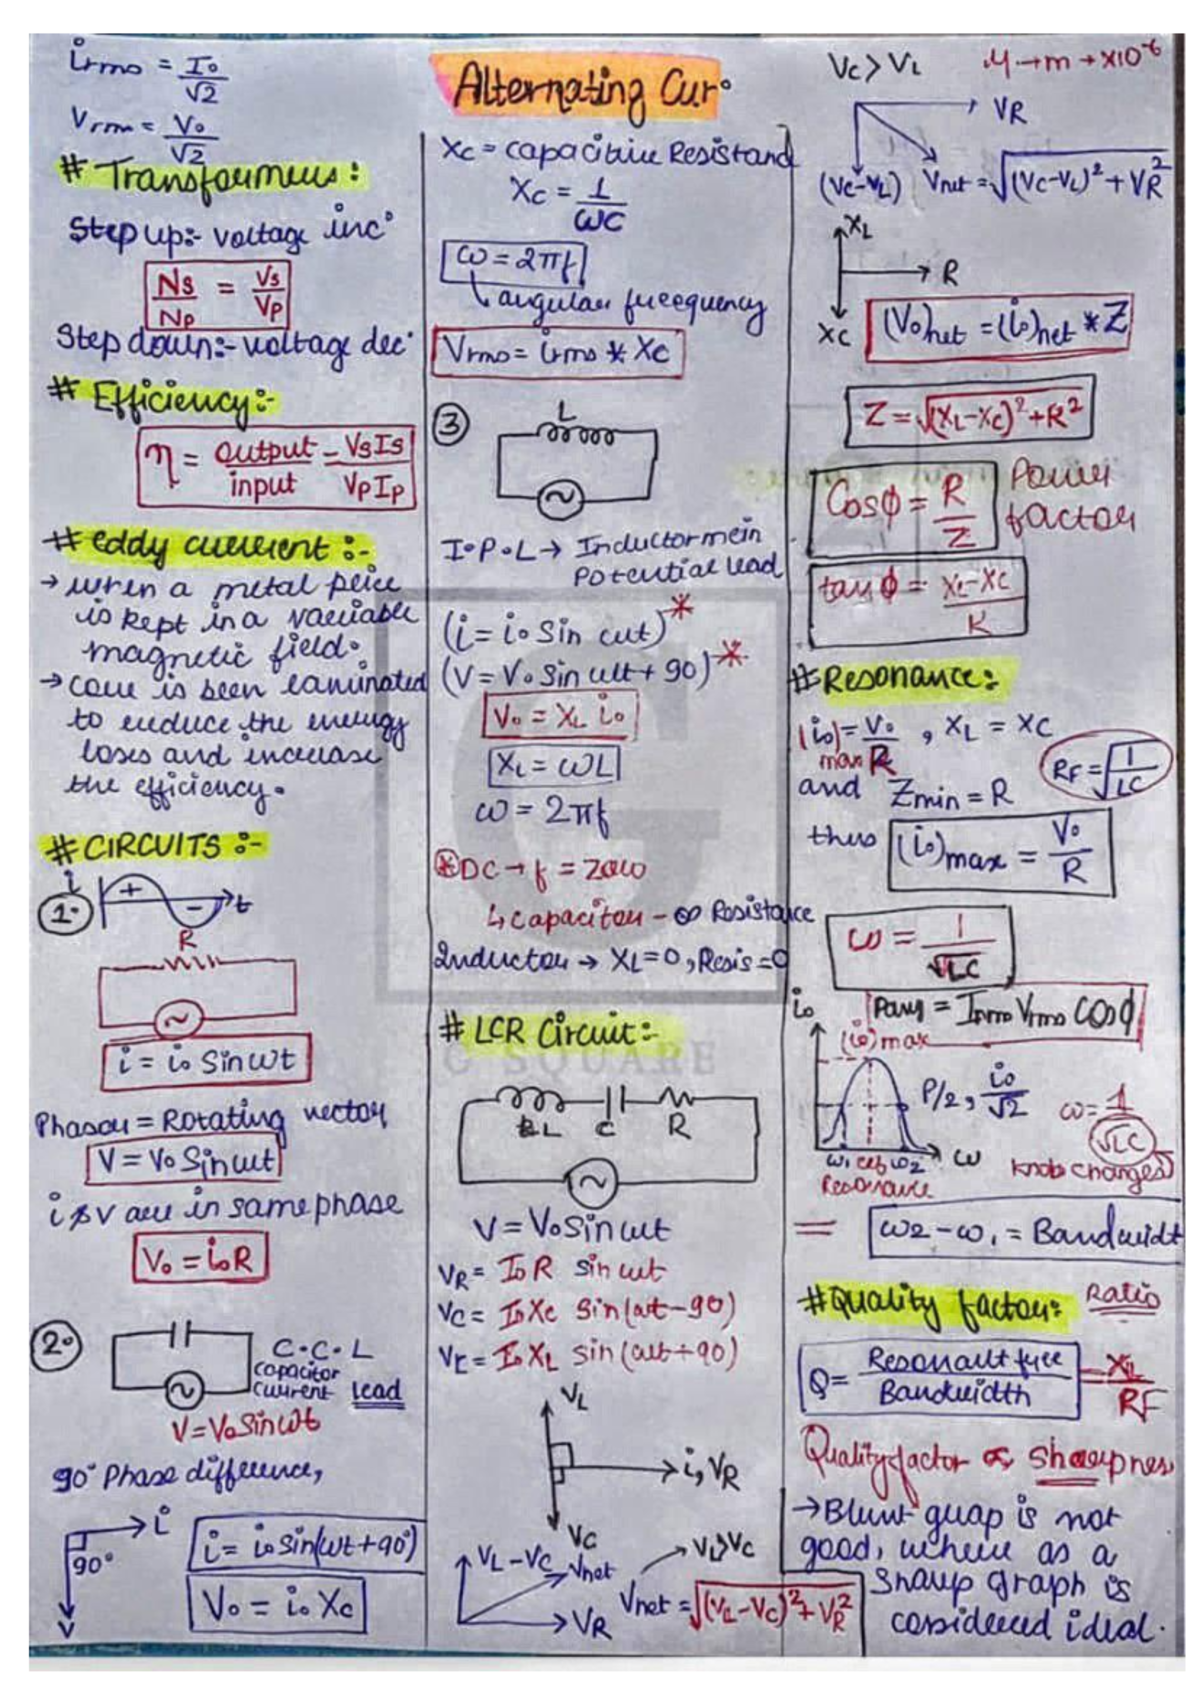 irms = I₀/√2
Vrms = V₀/√2
# Transformers:
Step up:- voltage inc°
Ns/Np = Vs/Vp
Step down:- voltage dec·
# Efficiency:-
η = output/input = VsIs/VpIp
# eddy current :-
→ when a metal peice
is kept in a variable
magnetic field.
→ core is been laminated
to reduce the energy
loses and increase
the efficiency.
# CIRCUITS :-
1.
i
+
-
t
R
i = i₀ Sinωt
Phasor = Rotating vector
V = V₀ Sinωt
i & V are in same phase
V₀ = i₀R
2.
C.C.L
capacitor
current lead
V = V₀ Sinωt
90° Phase difference,
i
90°
V
i = i₀ sin(ωt+90°)
V₀ = i₀ Xc
Alternating Cur.
Xc = capacitive Resistand
Xc = 1/ωC
ω = 2πf
↳ angular freequency
Vrms = irms * Xc
3
L
I.P.L → Inductor mein
Potential lead
(i = i₀ Sin ωt)*
(V = V₀ Sin ωt + 90)*
V₀ = XL i₀
XL = ωL
ω = 2πf
* DC → f = zero
↳ Capacitor - ∞ Resistance
Inductor → XL = 0, Resis = 0
# LCR Circuit:-
C SQUARE
L C R
V = V₀ Sin ωt
VR = I₀ R sin ωt
Vc = I₀ Xc Sin(ωt-90)
VL = I₀ XL sin(ωt+90)
VL
i, VR
VC
VL - VC
Vnet
VR
VL > VC
Vnet = √(VL-VC)² + VR²
Vc > VL
μ → m → x10⁻⁶
VR
(Vc-VL)
Vnet = √(Vc-VL)² + VR²
XL
R
XC
(V₀)net = (i₀)net * Z
Z = √(XL-XC)² + R²
Cosφ = R/Z
Power
factor
tan φ = XL-XC/R
# Resonance:-
(i₀)max = V₀/R , XL = XC
RF = √1/LC
and Zmin = R
thus (i₀)max = V₀/R
ω = 1/√LC
Pavg = Irms Vrms cos φ
i₀
(i₀)max
P/2, i₀/√2
ω = 1/√LC
knob changes
ω₁ ω₂ ω
Resonance
= ω₂ - ω₁ = Bandwidt
# Quality factor:- Ratio
Q = Resonault frec/Bandwidth = XL/RF
Quality factor ∝ Sharpnes
→ Blunt grap is not
good, where as a
sharp graph is
considered ideal.